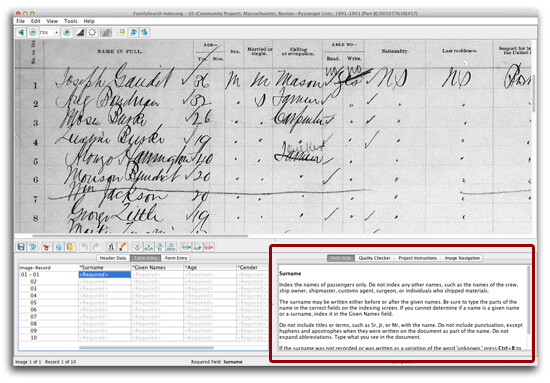 FamilySearch Indexing – US (Community Project), Massachusetts, Boston–Passenger Lists, 1891–1943 [Part B](005077638[457]
File Edit View Tools Help
75%
NAME IN FULL.
AGE—
Yrs. Mos.
Sex.
Married or single.
Calling or occupation.
ABLE TO—
Read. Write.
Nationality.
Last residence.
1 Joseph Gaudet 36 M M Mason yes NS NS
2 32 S Farmer
3 26 Carpenter
4 19
5 Alonzo Harrington 40 Farmer
6 Benedict 20
7 Wm Jackson 20
8 George Little 19
Header Data Table Entry Form Entry
Image-Record *Surname *Given Names *Age *Gender
01 - 01 <Required> <Required> <Required> <Required>
02 <Required> <Required> <Required> <Required>
03 <Required> <Required> <Required> <Required>
04 <Required> <Required> <Required> <Required>
05 <Required> <Required> <Required> <Required>
06 <Required> <Required> <Required> <Required>
07 <Required> <Required> <Required> <Required>
08 <Required> <Required> <Required> <Required>
09 <Required> <Required> <Required> <Required>
10 <Required> <Required> <Required> <Required>
Field Help Quality Checker Project Instructions Image Navigation
Surname
Index the names of passengers only. Do not index any other names, such as the names of the crew,
ship owner, shipmaster, customs agent, surgeon, or individuals who shipped materials.
The surname may be written either before or after the given names. Be sure to type the parts of
name in the correct fields on the indexing screen. If you cannot determine if a name is a given name
or a surname, index it in the Given Names field.
Do not include titles or terms, such as Sr, Jr, or Mr, with the name. Do not include punctuation, except
hyphens and apostrophes when they were written on the document as part of the name. Do not
expand abbreviations. Type what you see in the document.
If the surname was not recorded or was written as a variation of the word 'unknown,' press Ctrl+B to
Image 1 of 1 Record 1 of 10 Required Field: Surname